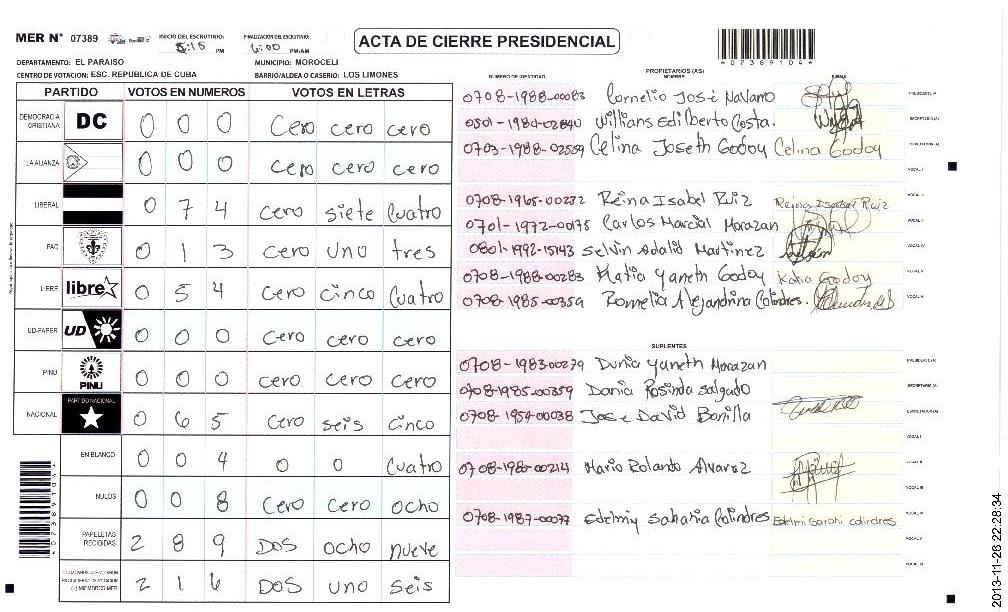 MER N° 07389
INICIO DEL ESCRUTINIO:
5:15 PM
FINALIZACIÓN DEL ESCRUTINIO:
6:00 PM/AM
ACTA DE CIERRE PRESIDENCIAL
*07389104*
DEPARTAMENTO: EL PARAISO
MUNICIPIO: MOROCELI
CENTRO DE VOTACION: ESC. REPUBLICA DE CUBA
BARRIO/ALDEA O CASERIO: LOS LIMONES
PARTIDO VOTOS EN NUMEROS VOTOS EN LETRAS
DEMOCRACIA CRISTIANA DC 0 0 0 Cero cero cero
LA ALIANZA 0 0 0 Cero cero cero
LIBERAL 0 7 4 Cero siete Cuatro
PAC 0 1 3 Cero uno tres
LIBRE libre 0 5 4 Cero cinco Cuatro
UD-FAPER UD 0 0 0 Cero cero cero
PINU PINU 0 0 0 cero Cero Cero
NACIONAL PARTIDO NACIONAL 0 6 5 Cero seis cinco
EN BLANCO 0 0 4 0 0 Cuatro
NULOS 0 0 8 Cero Cero ocho
PAPELETAS RECIBIDAS 2 8 9 Dos ocho nueve
CIUDADANOS QUE VOTARON EN CUADERNO DE VOTACION (+) MIEMBROS MER 2 1 6 Dos uno Seis
*07389104*
NUMERO DE IDENTIDAD PROPIETARIOS (AS) NOMBRE FIRMA
0708-1988-00083 Cornelio José Navarro PRESIDENTE (A)
0501-1984-02840 Willians Edilberto Costa. SECRETARIO (A)
0703-1988-02559 Celina Joseth Godoy Celina Godoy ESCRUTADOR (A)
VOCAL I
0708-1965-00232 Reina Isabel Ruiz Reina Isabel Ruiz VOCAL II
0701-1972-00175 Carlos Marcial Morazan VOCAL III
0801-1992-15143 Selvin Adalid Martinez VOCAL IV
0708-1988-00283 Katia Yaneth Godoy Katia Godoy VOCAL V
0708-1985-00359 Romelia Alejandrina Colindres. VOCAL VI
SUPLENTES
0708-1983-00239 Dunia Yaneth Morazan PRESIDENTE (A)
0708-1985-00359 Dania Rosinda Salgado SECRETARIO (A)
0708-1954-00038 Jose David Bonilla ESCRUTADOR (A)
VOCAL I
0708-1980-00214 Mario Rolando Alvarez VOCAL II
VOCAL III
0708-1987-00077 Edelmiy Sarahia Colindres Edelmi Sarahi colindres VOCAL IV
VOCAL V
VOCAL VI
2013-11-26 22:28:34